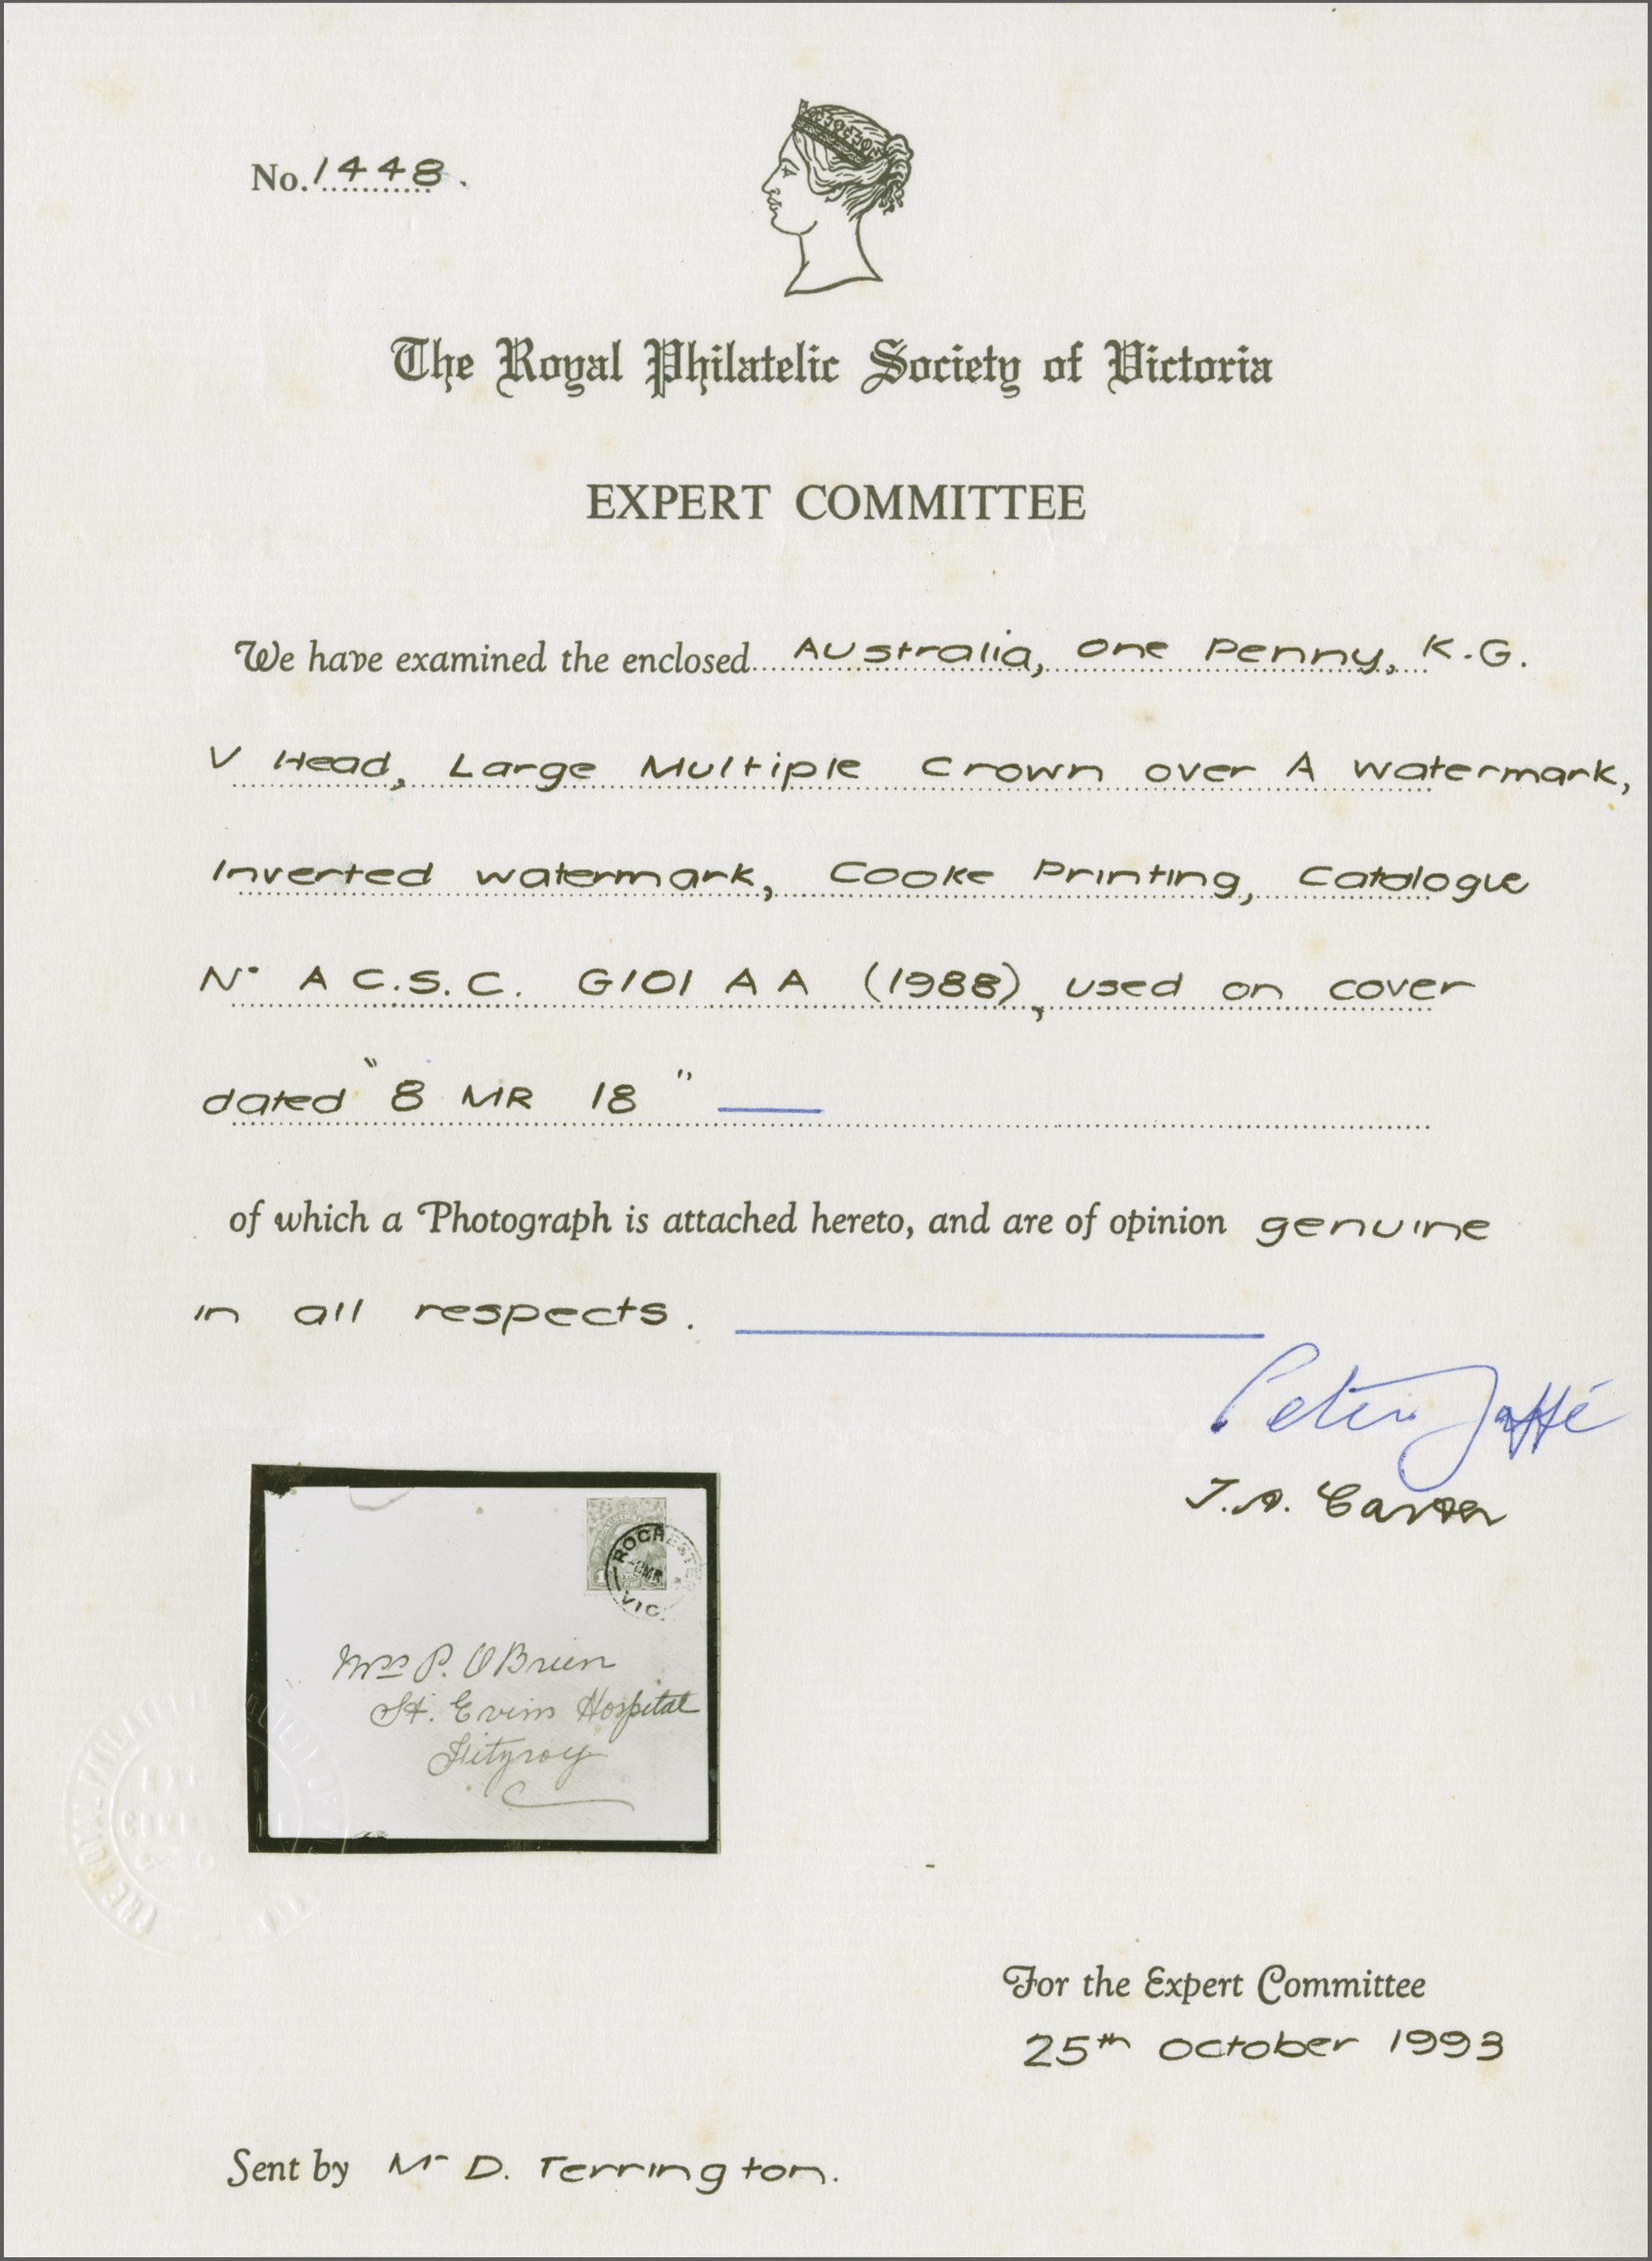 No. 1448.
The Royal Philatelic Society of Victoria
EXPERT COMMITTEE
We have examined the enclosed Australia, one Penny, K.G.
V Head, Large Multiple Crown over A watermark,
Inverted watermark, Cooke Printing, Catalogue
No A C.S.C. G101 AA (1988), used on cover
dated "8 MR 18"
of which a Photograph is attached hereto, and are of opinion genuine
in all respects.
Peter Jaffé
ROCHESTER
VIC.
Mrs P. O'Brien
St. Evins Hospital
Fitzroy
For the Expert Committee
25th October 1993
Sent by Mr D. Terrington.